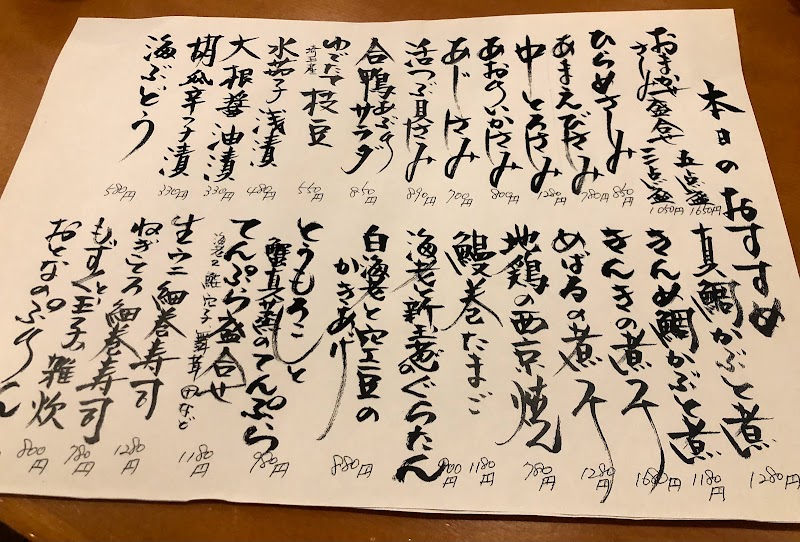 本日のおすすめ
おまかせ盛合せ 五点盛 1650円
三点盛 1050円
ひらめさしみ 860円
あまえびさしみ 780円
中とろさしみ 1280円
あおりいかさしみ 800円
あじさしみ 700円
活つぶ貝さしみ 890円
合鴨あぶりサラダ 850円
ゆでたて枝豆 550円
水茄子浅漬 480円
大根醤油漬 330円
胡瓜辛子漬 330円
海ぶどう 580円
真鯛かぶと煮 1280円
きんめ鯛かぶと煮 1180円
きんきの煮つけ 1680円
めばるの煮つけ 1280円
地鶏の西京焼 780円
鰻巻たまご 1180円
海老と新玉葱のぐらたん 900円
白海老と空豆の
かきあげ 880円
とうもろこしと
蟹真薯のてんぷら 980円
てんぷら盛合せ
海老2 鱚 穴子 舞茸 など 1180円
生ウニ細巻寿司 1280円
ねぎとろ細巻寿司 780円
もずくと玉子の雑炊 800円
おとなのぷりん